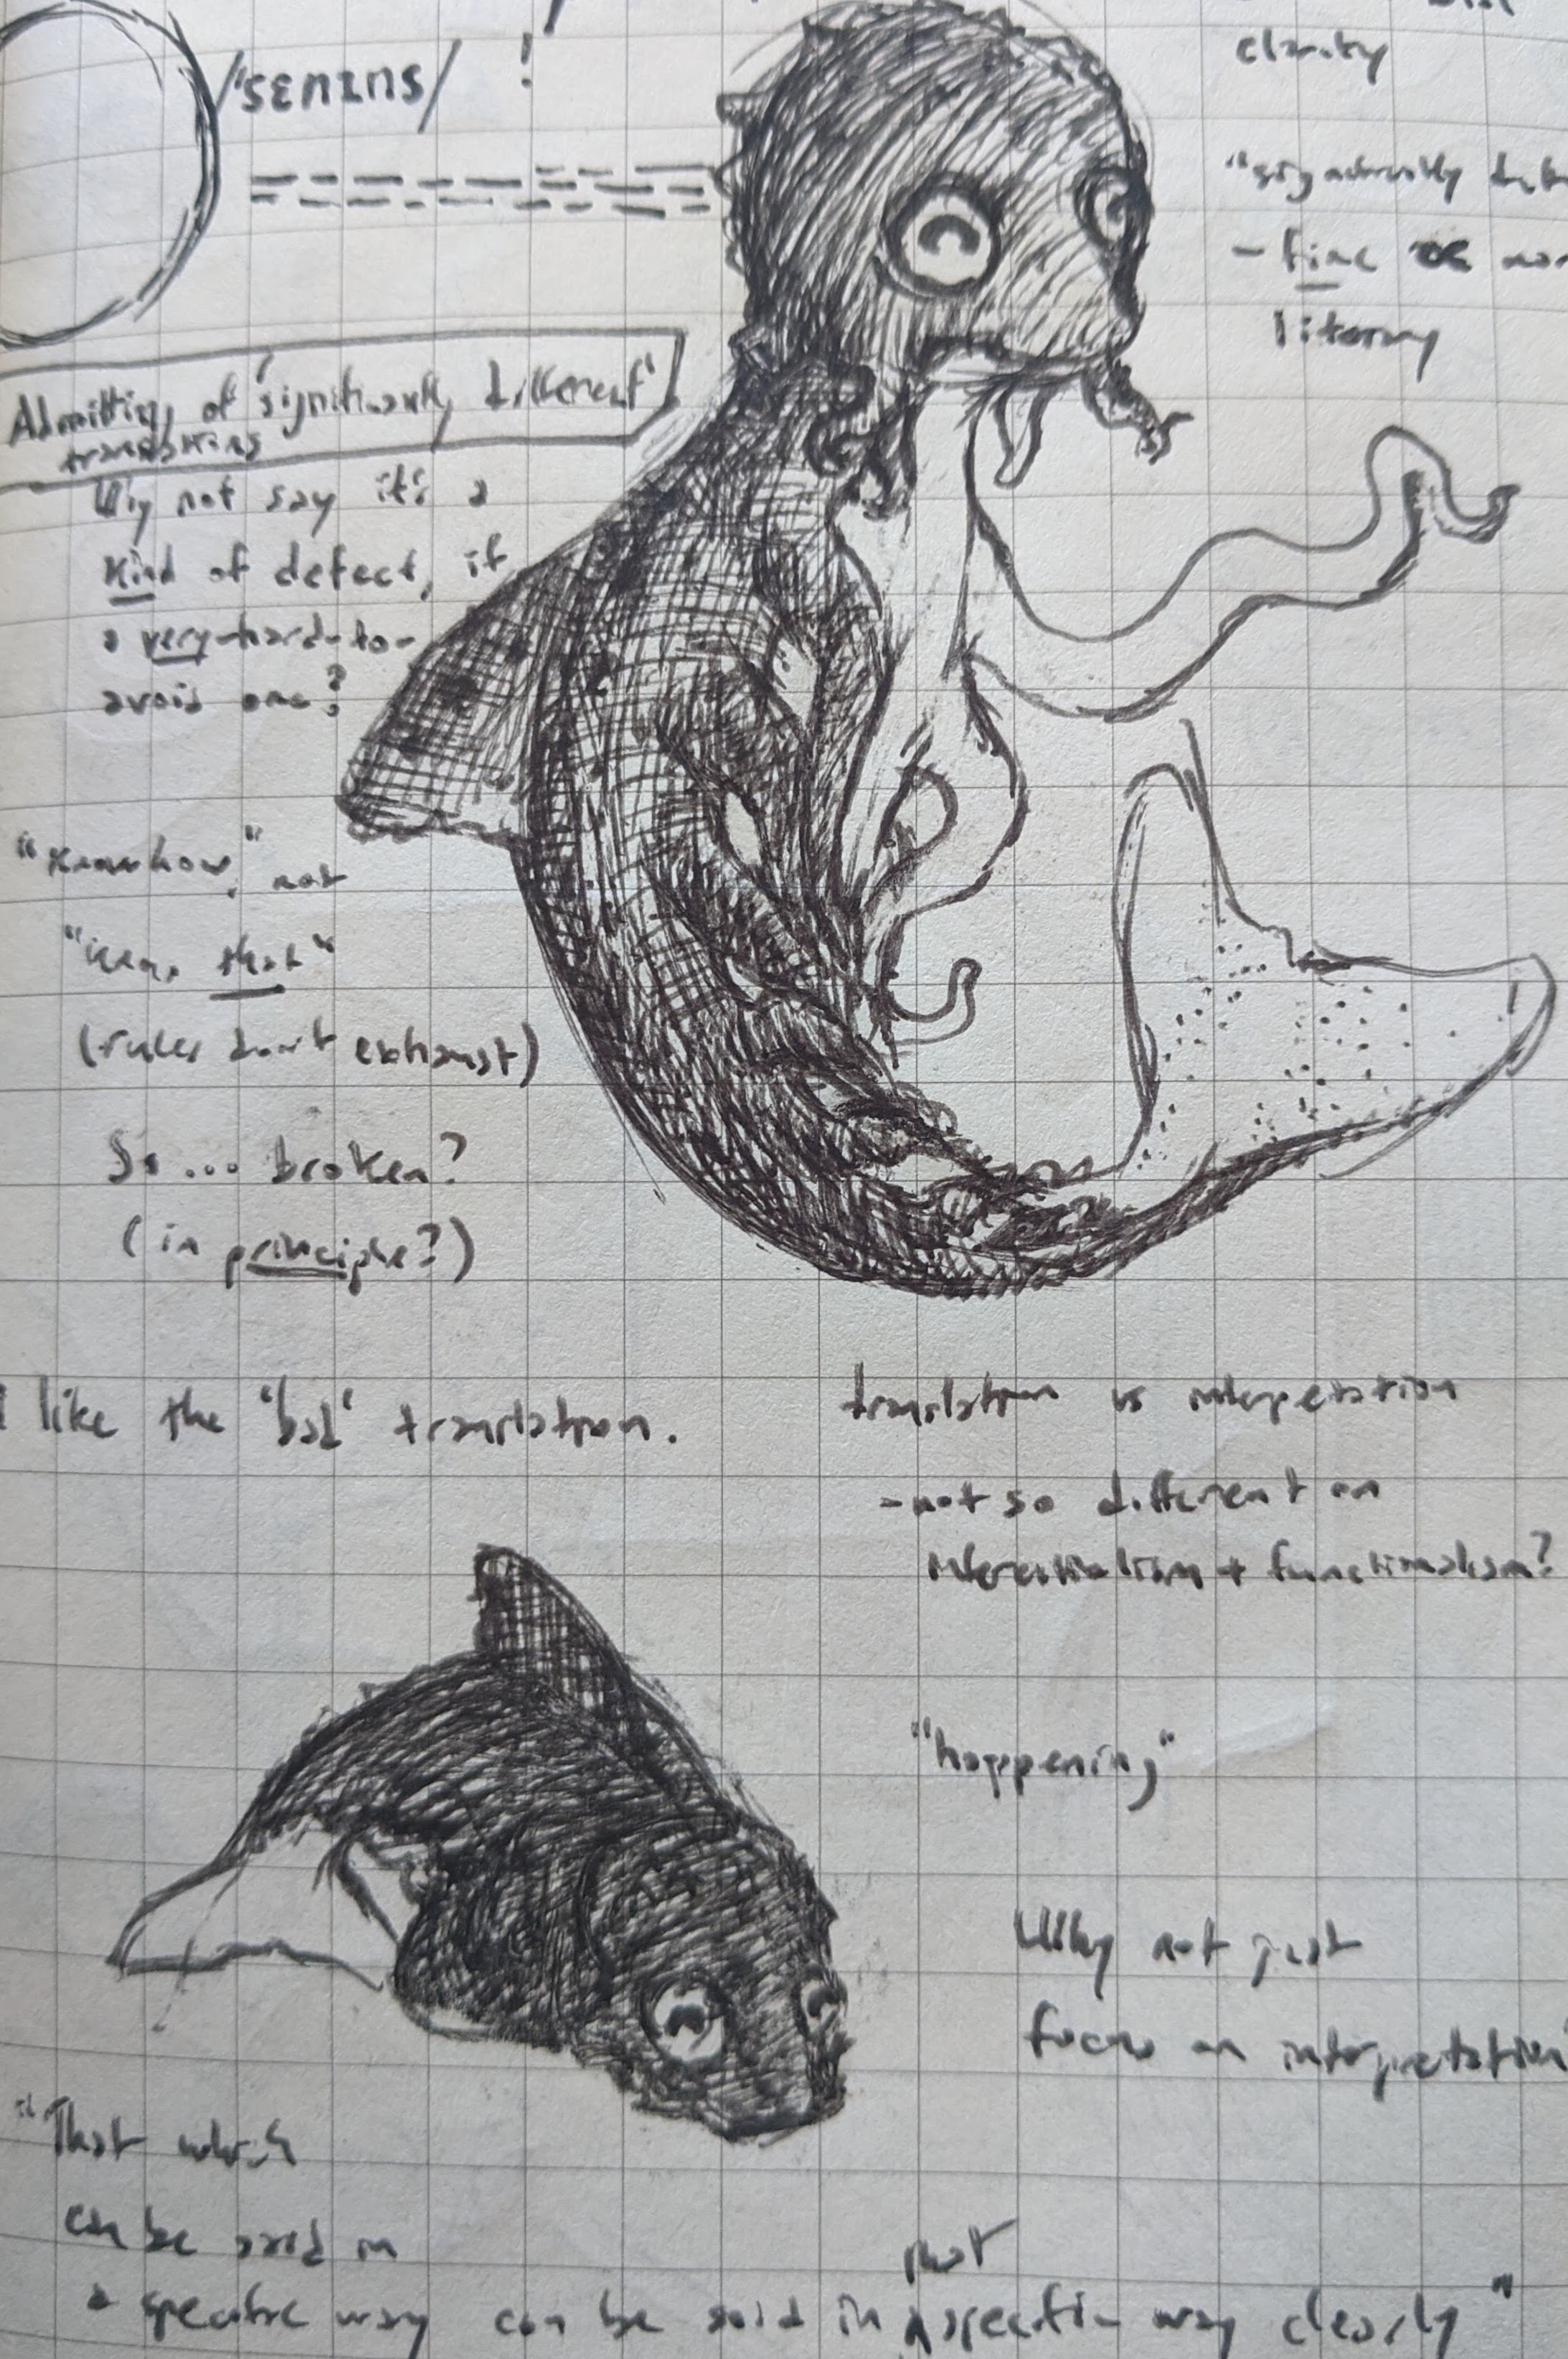 /'sɛnɪns/ !
clarity
"significantly
- fine
literary
Admitting of 'significantly different'
translations
Why not say it's a
kind of defect, if
a very-hard-to-
avoid one?
"Know how," not
"know that"
(rules don't exhaust)
So... broken?
(in principle?)
I like the 'bad' translation.
translation vs interpretation
- not so different on
inferentialism + functionalism?
"happening"
Why not just
focus on interpretation
"That which
can be said in
a specific way can be said in that specific way clearly"